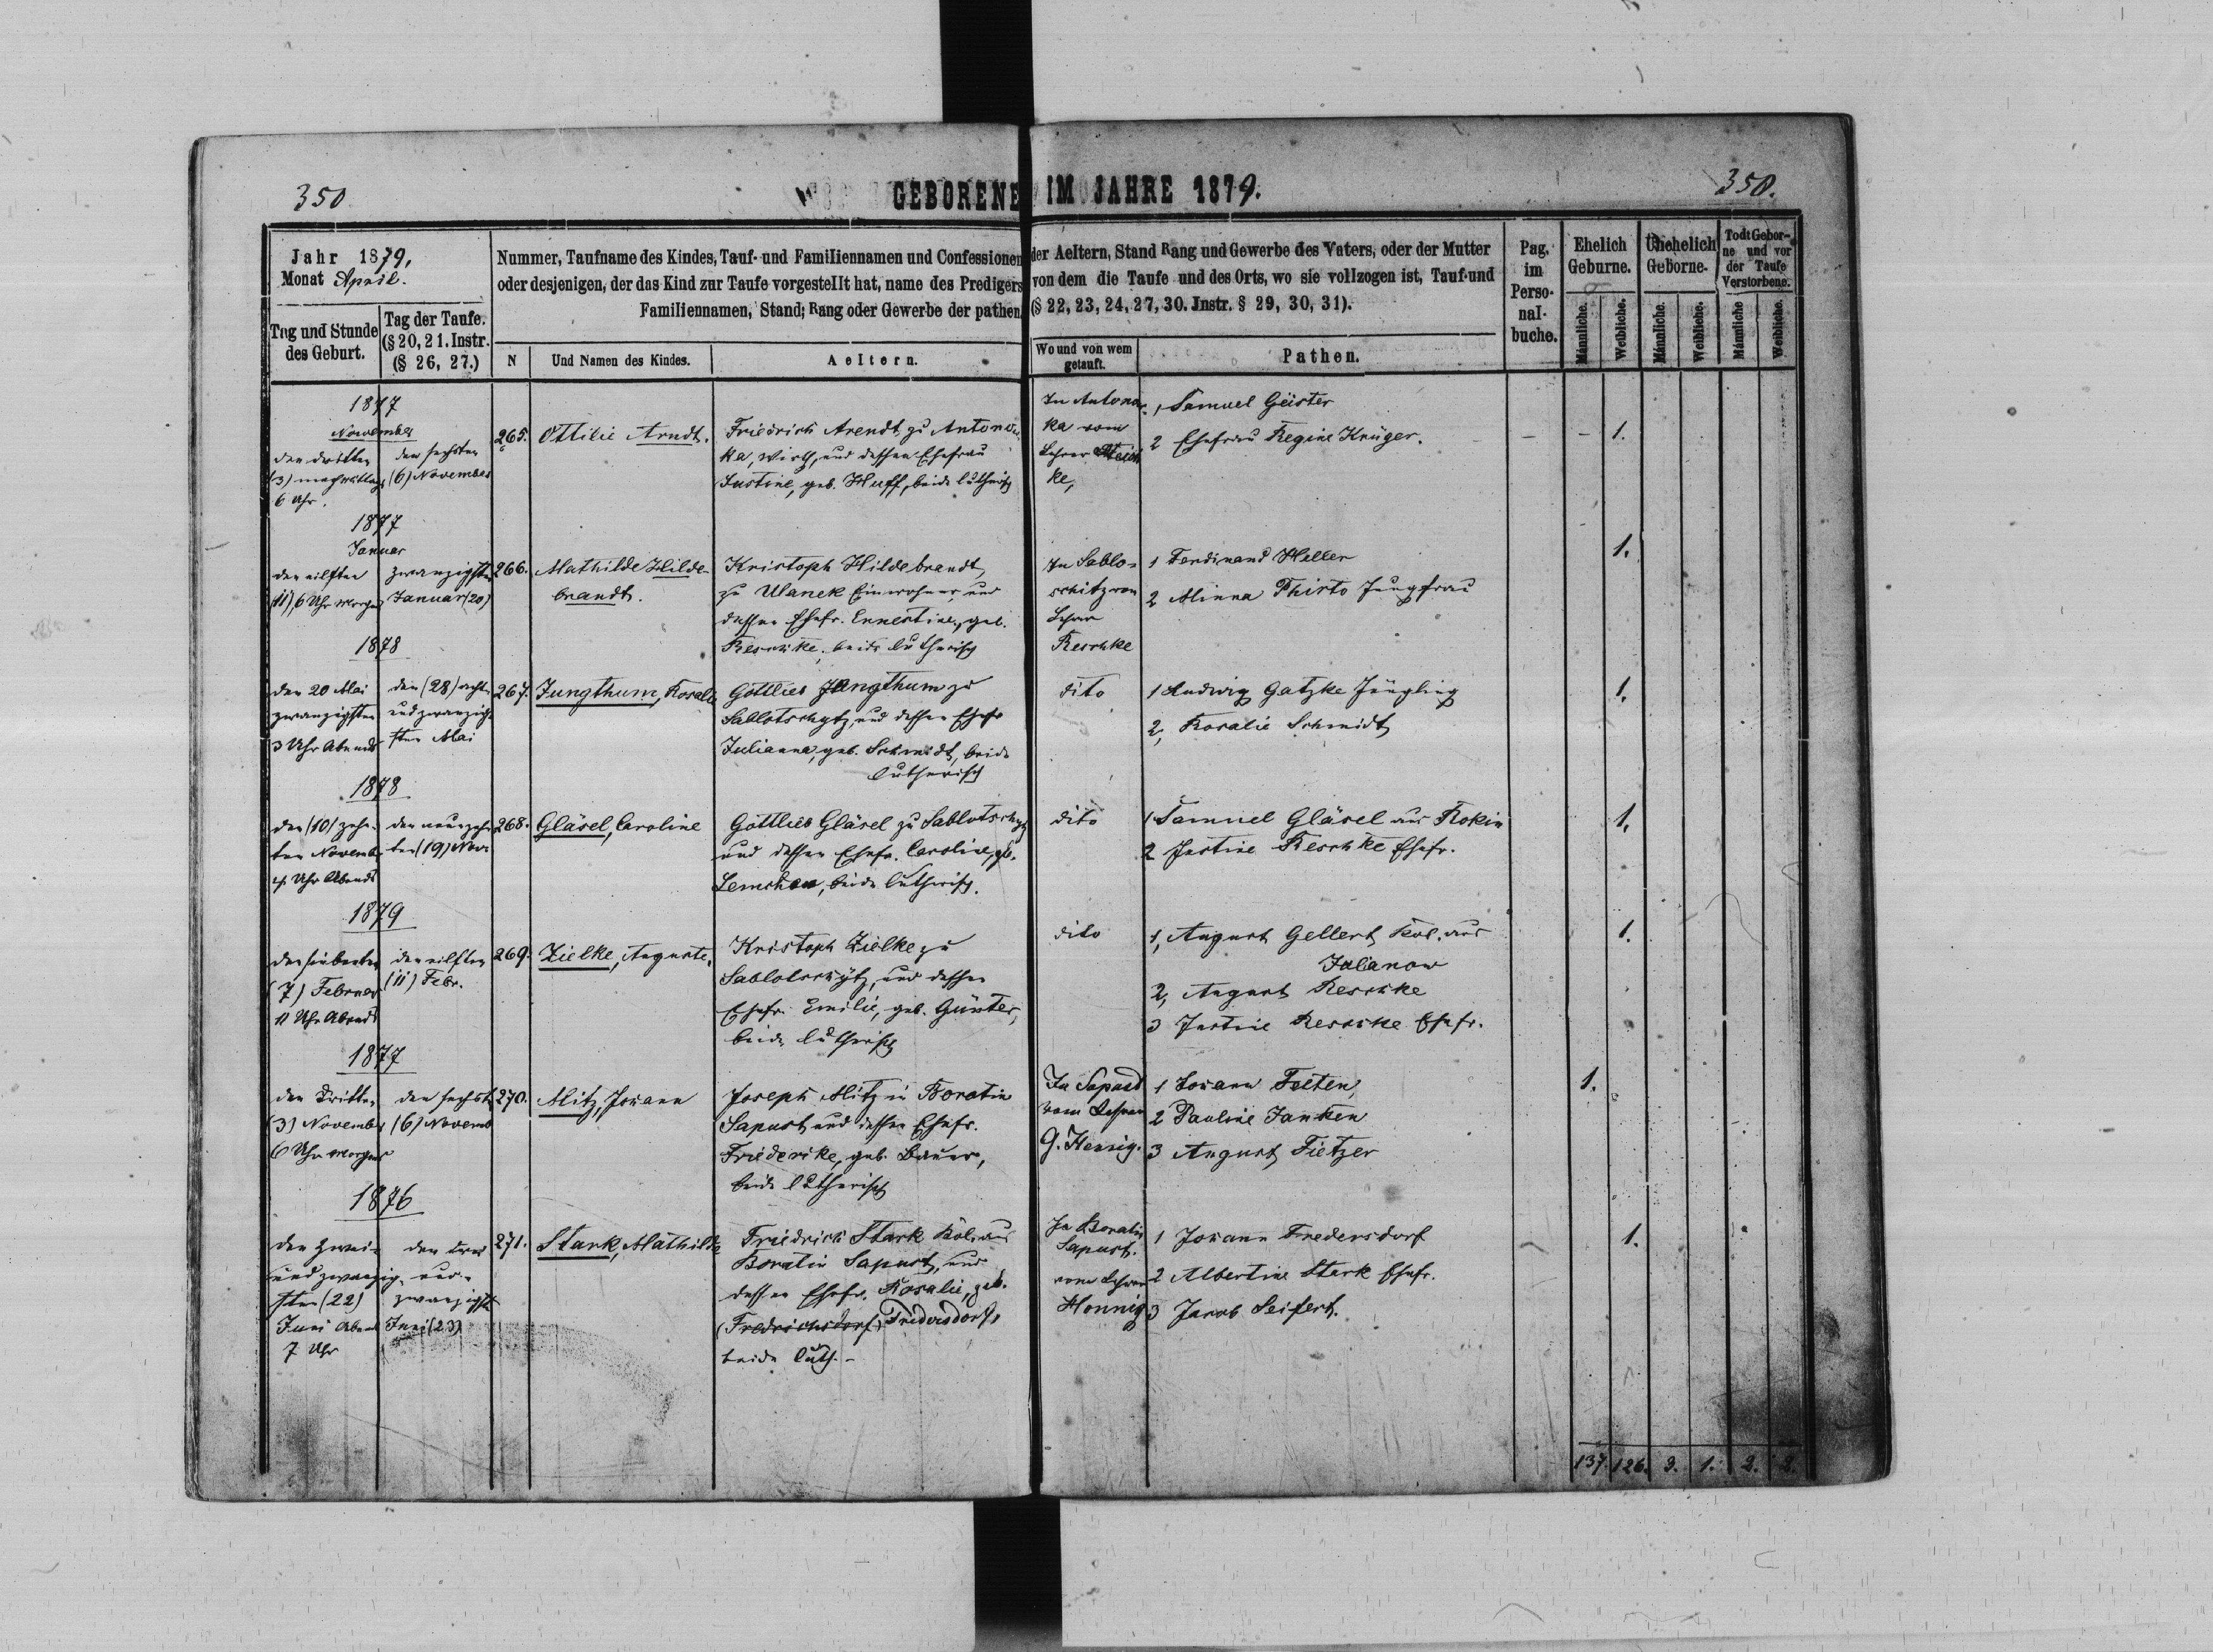 350
GEBORENE IM JAHRE 1879.
350.
Jahr 1879,
Monat April.
Tag und Stunde
des Geburt.
Tag der Taufe.
(§ 20, 21. Instr.
(§ 26, 27.)
Nummer, Taufname des Kindes, Tauf- und Familiennamen und Confessionen der Aeltern, Stand Rang und Gewerbe des Vaters, oder der Mutter
oder desjenigen, der das Kind zur Taufe vorgestellt hat, name des Predigers von dem die Taufe und des Orts, wo sie vollzogen ist, Tauf-und
Familiennamen, Stand; Rang oder Gewerbe der pathen. (§ 22, 23, 24, 27, 30. Instr. § 29, 30, 31).
N
Und Namen des Kindes.
Aeltern.
Wo und von wem
getauft.
Pathen.
Pag.
im
Perso-
nal-
buche.
Ehelich
Geburne.
Unehelich
Geborne.
Todt Gebor-
ne und vor
der Taufe
Verstorbene.
Männliche.
Weibliche.
Männliche.
Weibliche.
Männliche
Weibliche.
1877
November
den dritten
(3) nachmittags
6 Uhr.
den sechsten
(6) November
265.
Ottilie Arndt.
Friedrich Arendt zu Antonow-
ka, Wirth, und dessen Ehefrau
Justine, geb. Huff, beide lutherisch
In Antonow-
ka vom
Lehrer
ke,
1, Samuel Geister
2 Ehefrau Regine Krüger.
1.
1877
Januar
den eilften
(11), 6 Uhr Morgens
zwanzigsten
Januar (20)
266.
Mathilde Hilde-
brandt.
Kristoph Hildebrandt,
zu Ulanek Einwohner und
dessen Ehefr. Ernestine, geb.
Reschke, beide lutherisch
In Sablo-
schitz von
Lehrer
Reschke
1 Ferdinand Heller
2 Minna Thirto Jungfrau
1.
1878
den 20 Mai
zwanzigsten
3 Uhr Abends
den (28) acht
und zwanzig-
sten Mai
267.
Jungthum, Rosalie
Gottlieb Jungthum zu
Sablotschytz, und dessen Ehefr
Julianna, geb. Schmidt, beide
lutherisch
dito
1 Ludwig Gatzke Jüngling
2, Rosalie Schmidt
1.
1878
den (10) zehn-
ten Novemb.
4 Uhr Abends
den neunzehn
ten (19) Nov.
268.
Gläsel, Caroline
Gottlieb Gläsel zu Sablotschytz
und dessen Ehefr. Caroline, geb.
beide lutherisch.
dito
1 Samuel Gläsel aus Rokin
2 Justine Reschke Ehefr.
1.
1879
den siebenten
(7) Februar
11 Uhr Abends
den eilften
(11) Febr.
269.
Zielke, Auguste.
Kristoph Zielke zu
Sablotschytz, und dessen
Ehefr. Emilie, geb. Günter,
beide lutherisch
dito
1, August Gellert Kol. aus
Julanow
2, August Reschke
3 Justine Reschke Ehefr.
1.
1877
den dritten
(3) November
6 Uhr Morgens
den sechsten
(6) Novemb
270.
Mitz, Johann
Joseph Mitz in Boratin
Sapust und dessen Ehefr.
Friederike, geb. Bauer,
beide lutherisch
In Sapust
vom Lehrer
G. Hennig.
1 Johann Felten,
2 Pauline Janken
3 August Fietzer
1.
1876
den zwei-
und zwanzig-
sten (22)
Juni Abend
7 Uhr
den drei
und-
zwanzigsten
Juni (23)
271.
Stark, Mathilde
Friedrich Stark Kol. aus
Boratin Sapust, und
dessen Ehefr. Rosalie, geb.
(Fredrichsdorf) Fridersdorf,
beide luth. -
In Boratin
Sapust.
vom Lehrer
Hennig
1 Johann Fredersdorf
2 Albertine Stark Ehefr.
3 Jacob Seifert.
1.
137. 126. 3. 1. 2. 2.